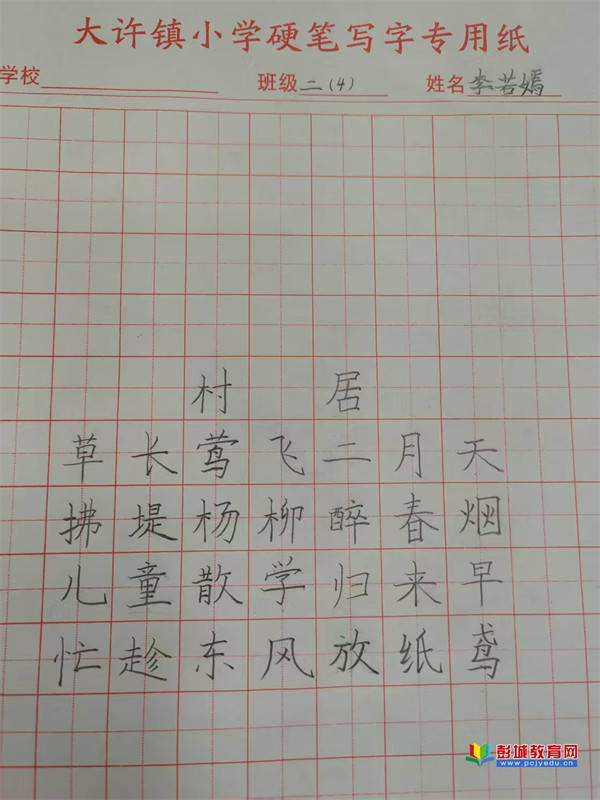 大许镇小学硬笔写字专用纸
学校 班级二(4) 姓名李若嫣
村居
草长莺飞二月天
拂堤杨柳醉春烟
儿童散学归来早
忙趁东风放纸鸢
彭城教育网
www.pcjyedu.cn